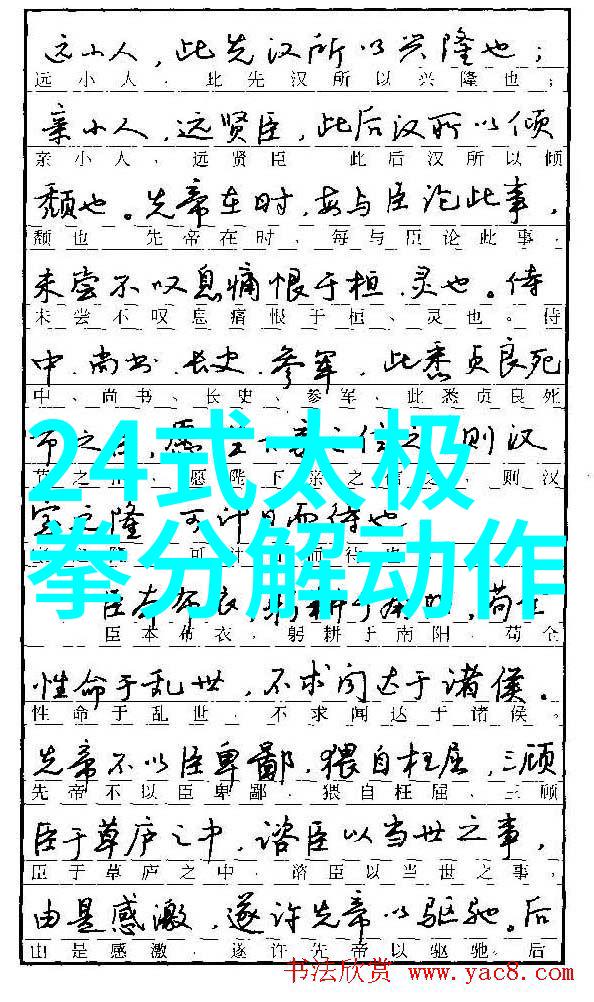 远小人，此先汉所以兴隆也；
远小人，此先汉所以兴隆也；
亲小人，远贤臣，此后汉所以倾
亲小人，远贤臣 此后汉所以倾
颓也。先帝在时，每与臣论此事，
颓也 先帝在时，每与臣论此事，
未尝不叹息痛恨于桓、灵也。侍
未尝不叹息痛恨于桓、灵也。侍
中、尚书、长史、参军，此悉贞良死
中、尚书、长史、参军，此悉贞良死
节之臣，愿陛下亲之信之，则汉
节之臣，愿陛下亲之信之，则汉
24式太极
室之隆 可计日而待也
可计 而待也
拳分解动作
臣本布衣，躬耕于南阳，苟全
臣本布衣，躬耕于南阳，苟全
性命于乱世，不求闻达于诸侯。
性命于乱世，不求闻达于诸侯。
先帝不以臣卑鄙，猥自枉屈，三顾
先帝不以臣卑鄙，猥自枉屈，三顾
臣于草庐之中，谘臣以当世之事，
臣于草庐之中，谘臣以当世之事，
由是感激，遂许先帝以驱驰。后
由是感激，遂许先帝以驱驰。后
书法欣赏 www.yac8.com